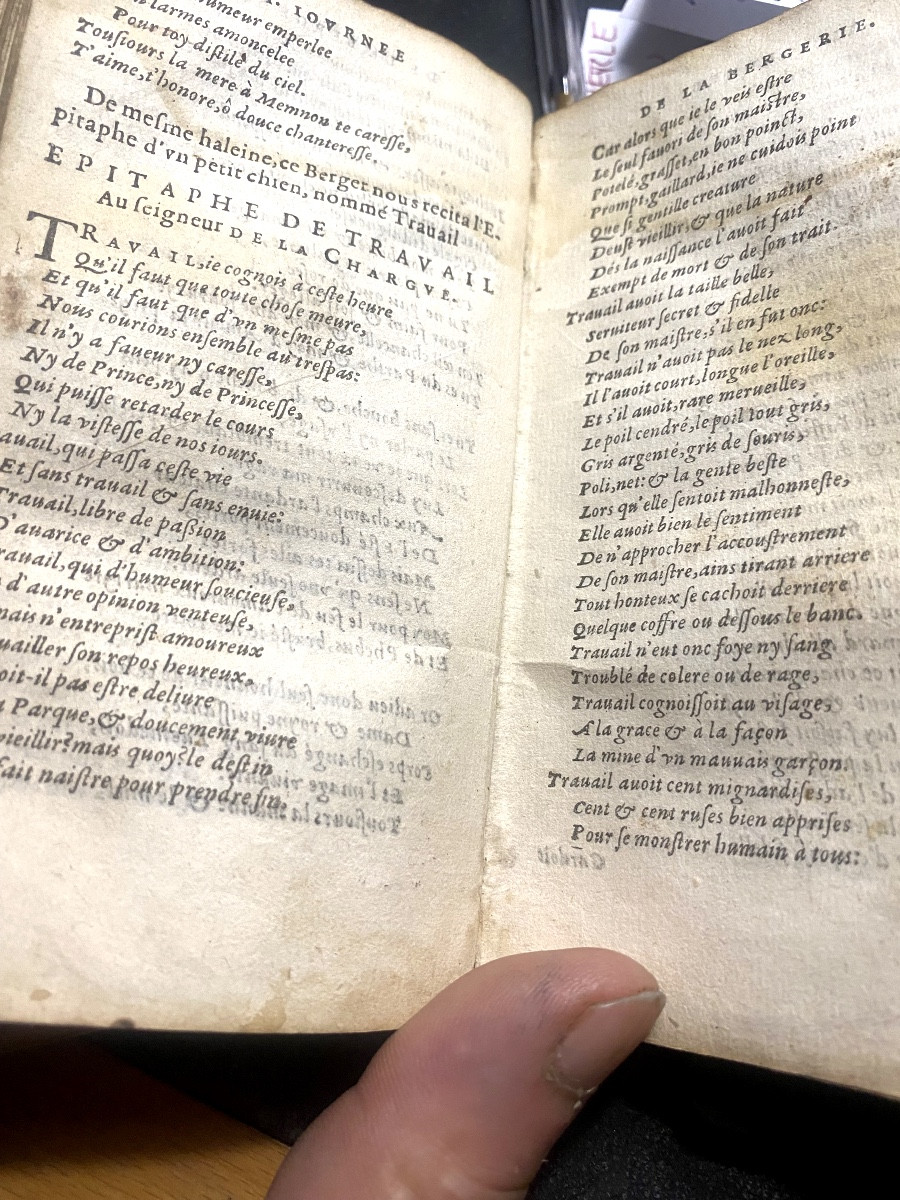 IOVRNEE
humeur emperlee
larmes amoncelee
Pour toy distilé du ciel.
Tousiours la mere à Memnon te caresse,
T'aime, t'honore, ô douce chanteresse,
De mesme haleine, ce Berger nous recita l'E-
pitaphe d'vn petit chien, nommé Trauail
EPITAPHE DE TRAVAIL
Au seigneur DE LA CHARGVE.
TRAVAIL, ie cognois à ceste heure
Qu'il faut que toute chose meure,
Et qu'il faut que d'vn mesme pas
Nous courions ensemble au trespas:
Il n'y a faueur ny caresse,
Ny de Prince, ny de Princesse,
Qui puisse retarder le cours
Ny la vistesse de nos iours.
auail, qui passa ceste vie
Et sans trauail & sans enuie:
Trauail, libre de passion
D'auarice & d'ambition:
rauail, qui d'humeur soucieuse,
d'autre opinion venteuse,
mais n'entreprist amoureux
uailler son repos heureux,
oit-il pas estre deliure
Parque, & doucement viure
vieillir? mais quoy? le destin
fait naistre pour prendre fin.
DE LA BERGERIE.
Car alors que ie le veis estre
Le seul fauori de son maistre,
Potelé, grasset, en bon poinct,
Prompt, gaillard, ie ne cuidois point
Que si gentille creature
Deust vieillir, & que la nature
Dés la naissance l'auoit fait
Exempt de mort & de son trait.
Trauail auoit la taille belle,
Seruiteur secret & fidelle
De son maistre, s'il en fut onc:
Trauail n'auoit pas le nez long,
Il l'auoit court, longue l'oreille,
Et s'il auoit, rare merueille,
Le poil cendré, le poil tout gris,
Gris argenté, gris de souris,
Poli, net: & la gente beste
Lors qu'elle sentoit malhonneste,
Elle auoit bien le sentiment
De n'approcher l'accoustrement
De son maistre, ains tirant arriere
Tout honteux se cachoit derriere
Quelque coffre ou dessous le banc.
Trauail n'eut onc foye ny sang
Troublé de colere ou de rage,
Trauail cognoissoit au visage,
A la grace & à la façon
La mine d'vn mauuais garçon.
Trauail auoit cent mignardises,
Cent & cent ruses bien apprises
Pour se monstrer humain à tous: